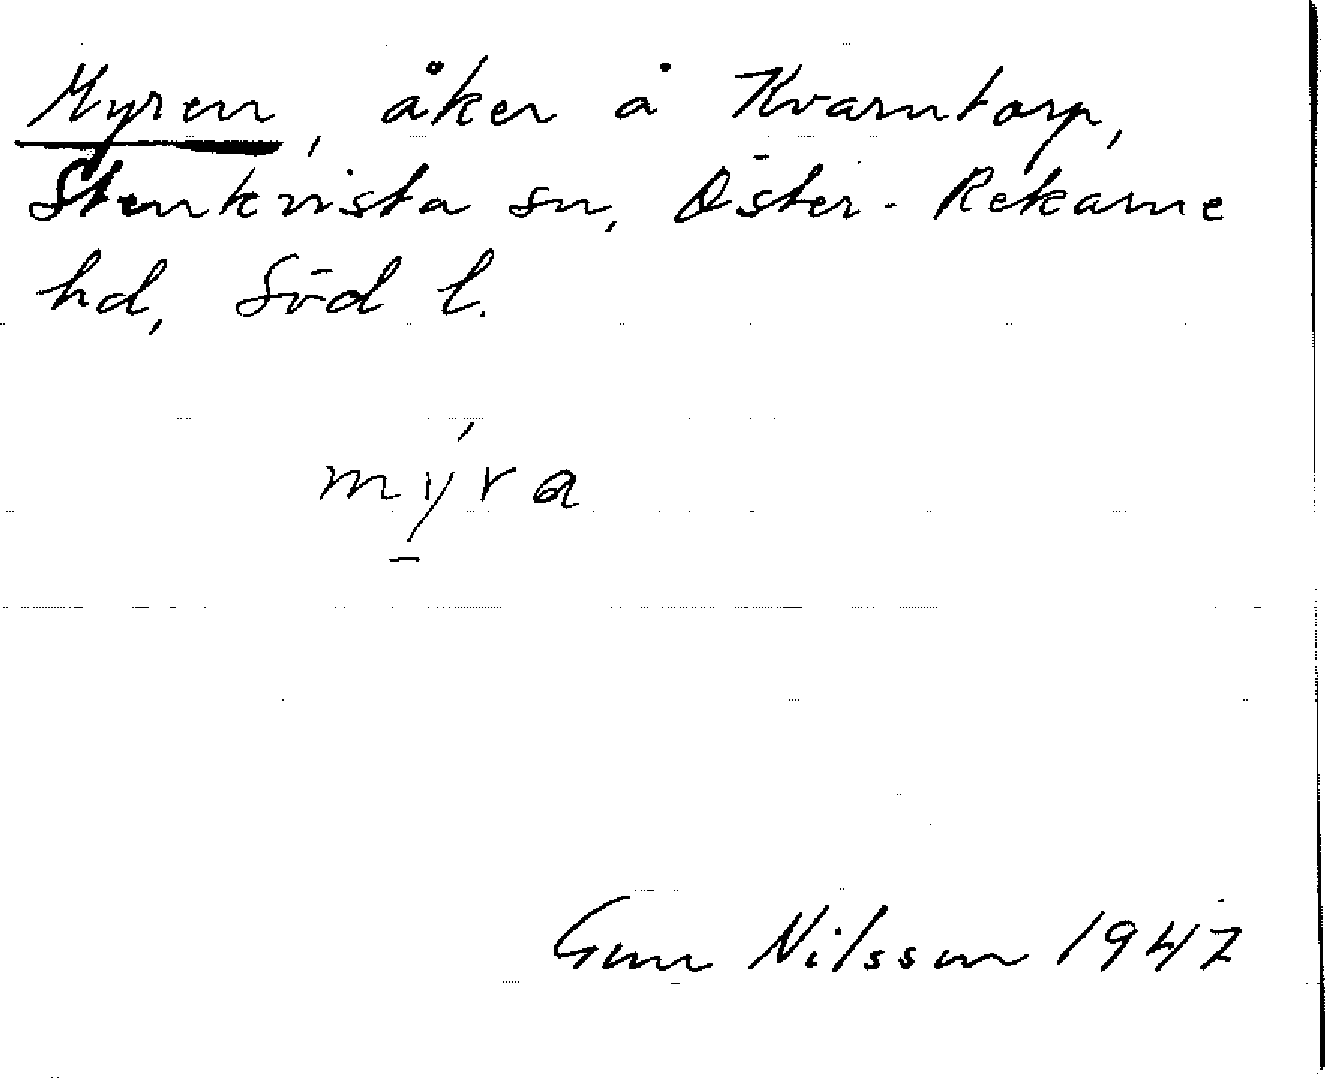 Myren, åker å Kvarntorp,
Stenkvista sn, Öster-Rekarne
hd, Söd l.
mýra
Gun Nilsson 1947